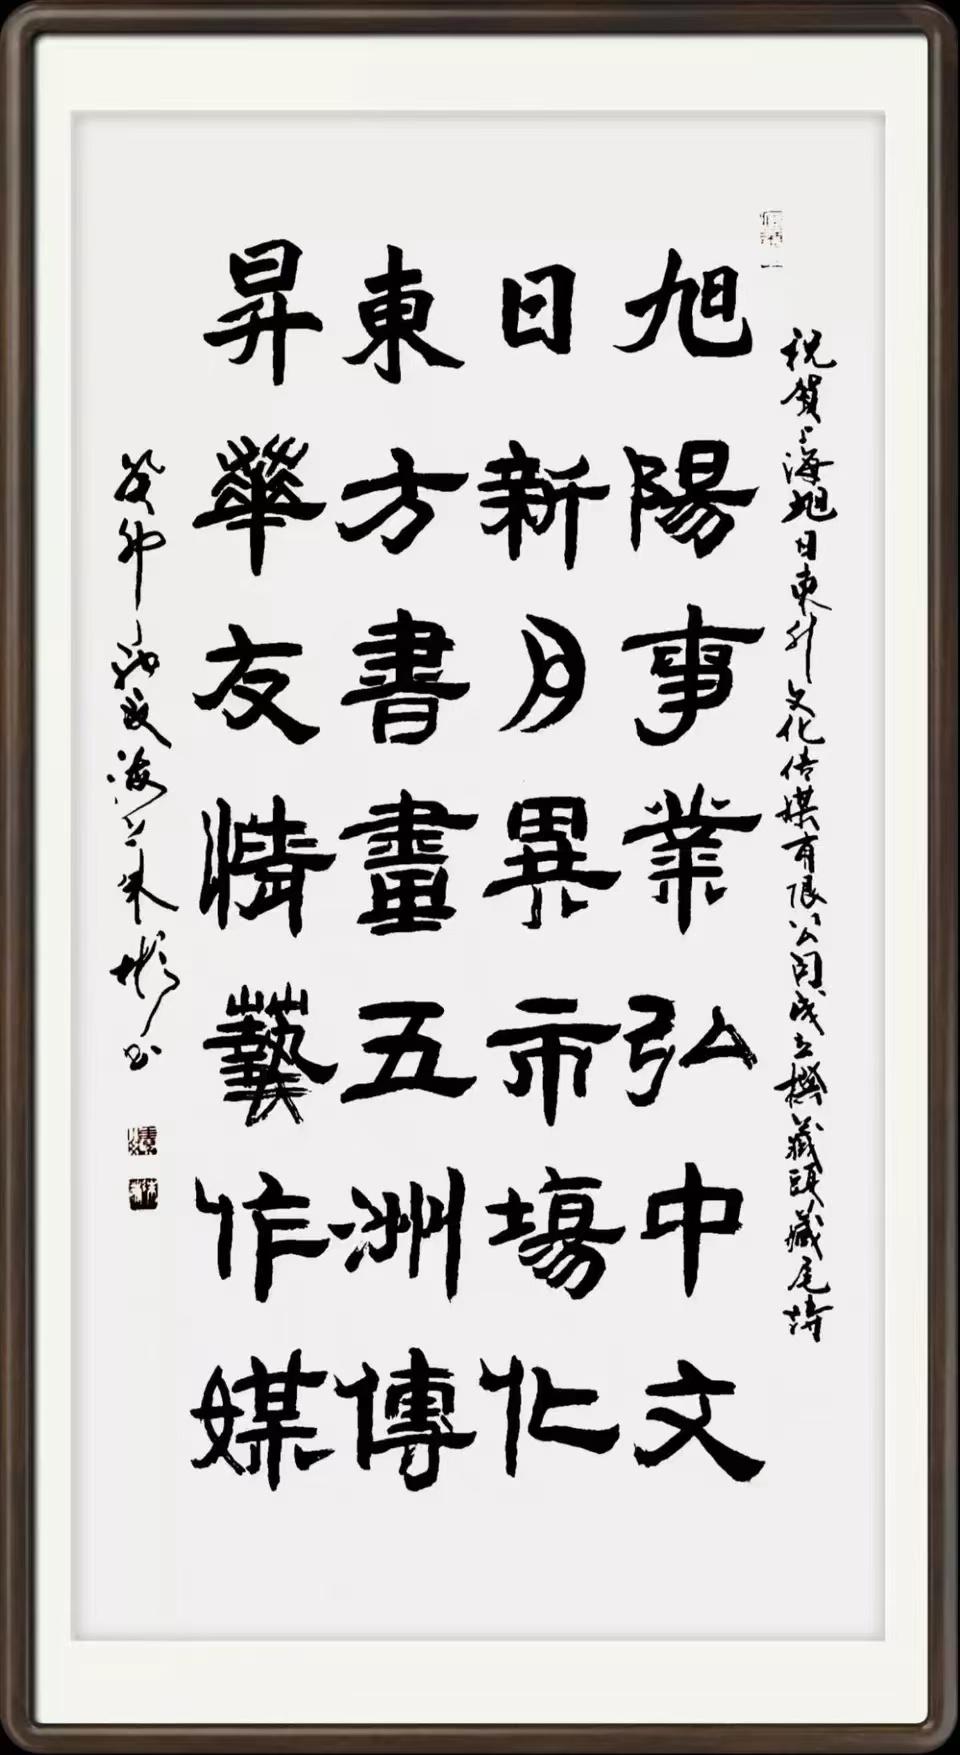 祝賀上海旭日東升文化传媒有限公司成立撰藏頭藏尾詩
旭陽事業弘中文
日新月異市場化
東方書畫五洲傳
昇華友情藝作媒
癸卯